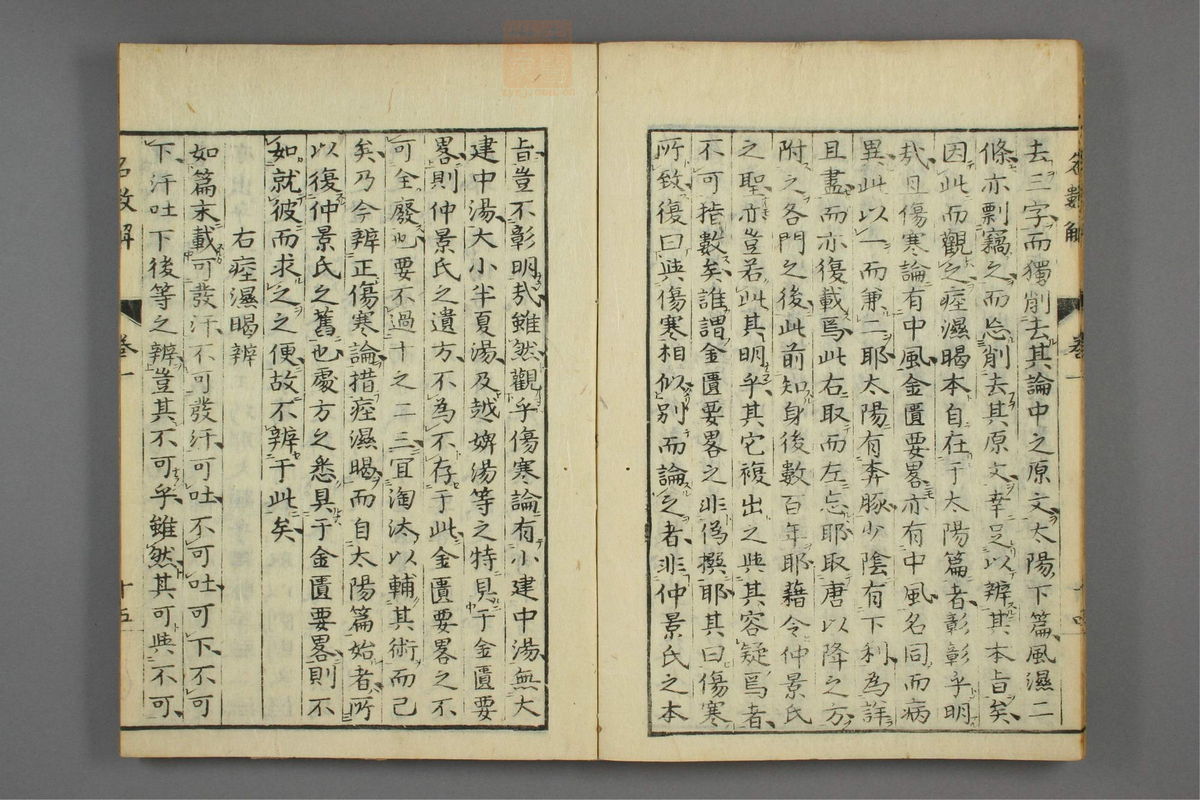 名數解 卷一 十四
去三字而獨削去其論中之原文太陽下篇風濕二
條亦剽竊之而忘削去其原文幸足以辨其本旨矣
因此而觀之痓濕暍本自在于太陽篇者彰彰乎明
哉且傷寒論有中風金匱要畧亦有中風名同而病
異此以一而兼二耶太陽有奔豚少陰有下利為詳
且盡而亦復載焉此右取而左忘耶取唐以降之方
附之各門之後此前知身後數百年耶藉令仲景氏
之聖亦豈若此其明乎其它複出之與其容疑焉者
不可指數矣誰謂金匱要畧之非偽撰耶其曰傷寒
所致復曰與傷寒相似別而論之者非仲景氏之本
旨豈不彰明哉雖然觀乎傷寒論有小建中湯無大
建中湯大小半夏湯及越婢湯等之特見于金匱要
畧則仲景氏之遺方不為不存于此金匱要畧之不
可全廢也要不過十之二三宜淘汰以輔其術而已
矣乃今辨正傷寒論措痓濕暍而自太陽篇始者所
以復仲景氏之舊也處方之悉具于金匱要畧則不
如就彼而求之之便故不辨于此矣
右痓濕暍辨
如篇末載可發汗不可發汗可吐不可吐可下不可
下汗吐下後等之辨豈其不可乎雖然其可與不可
名數解 卷一 十五